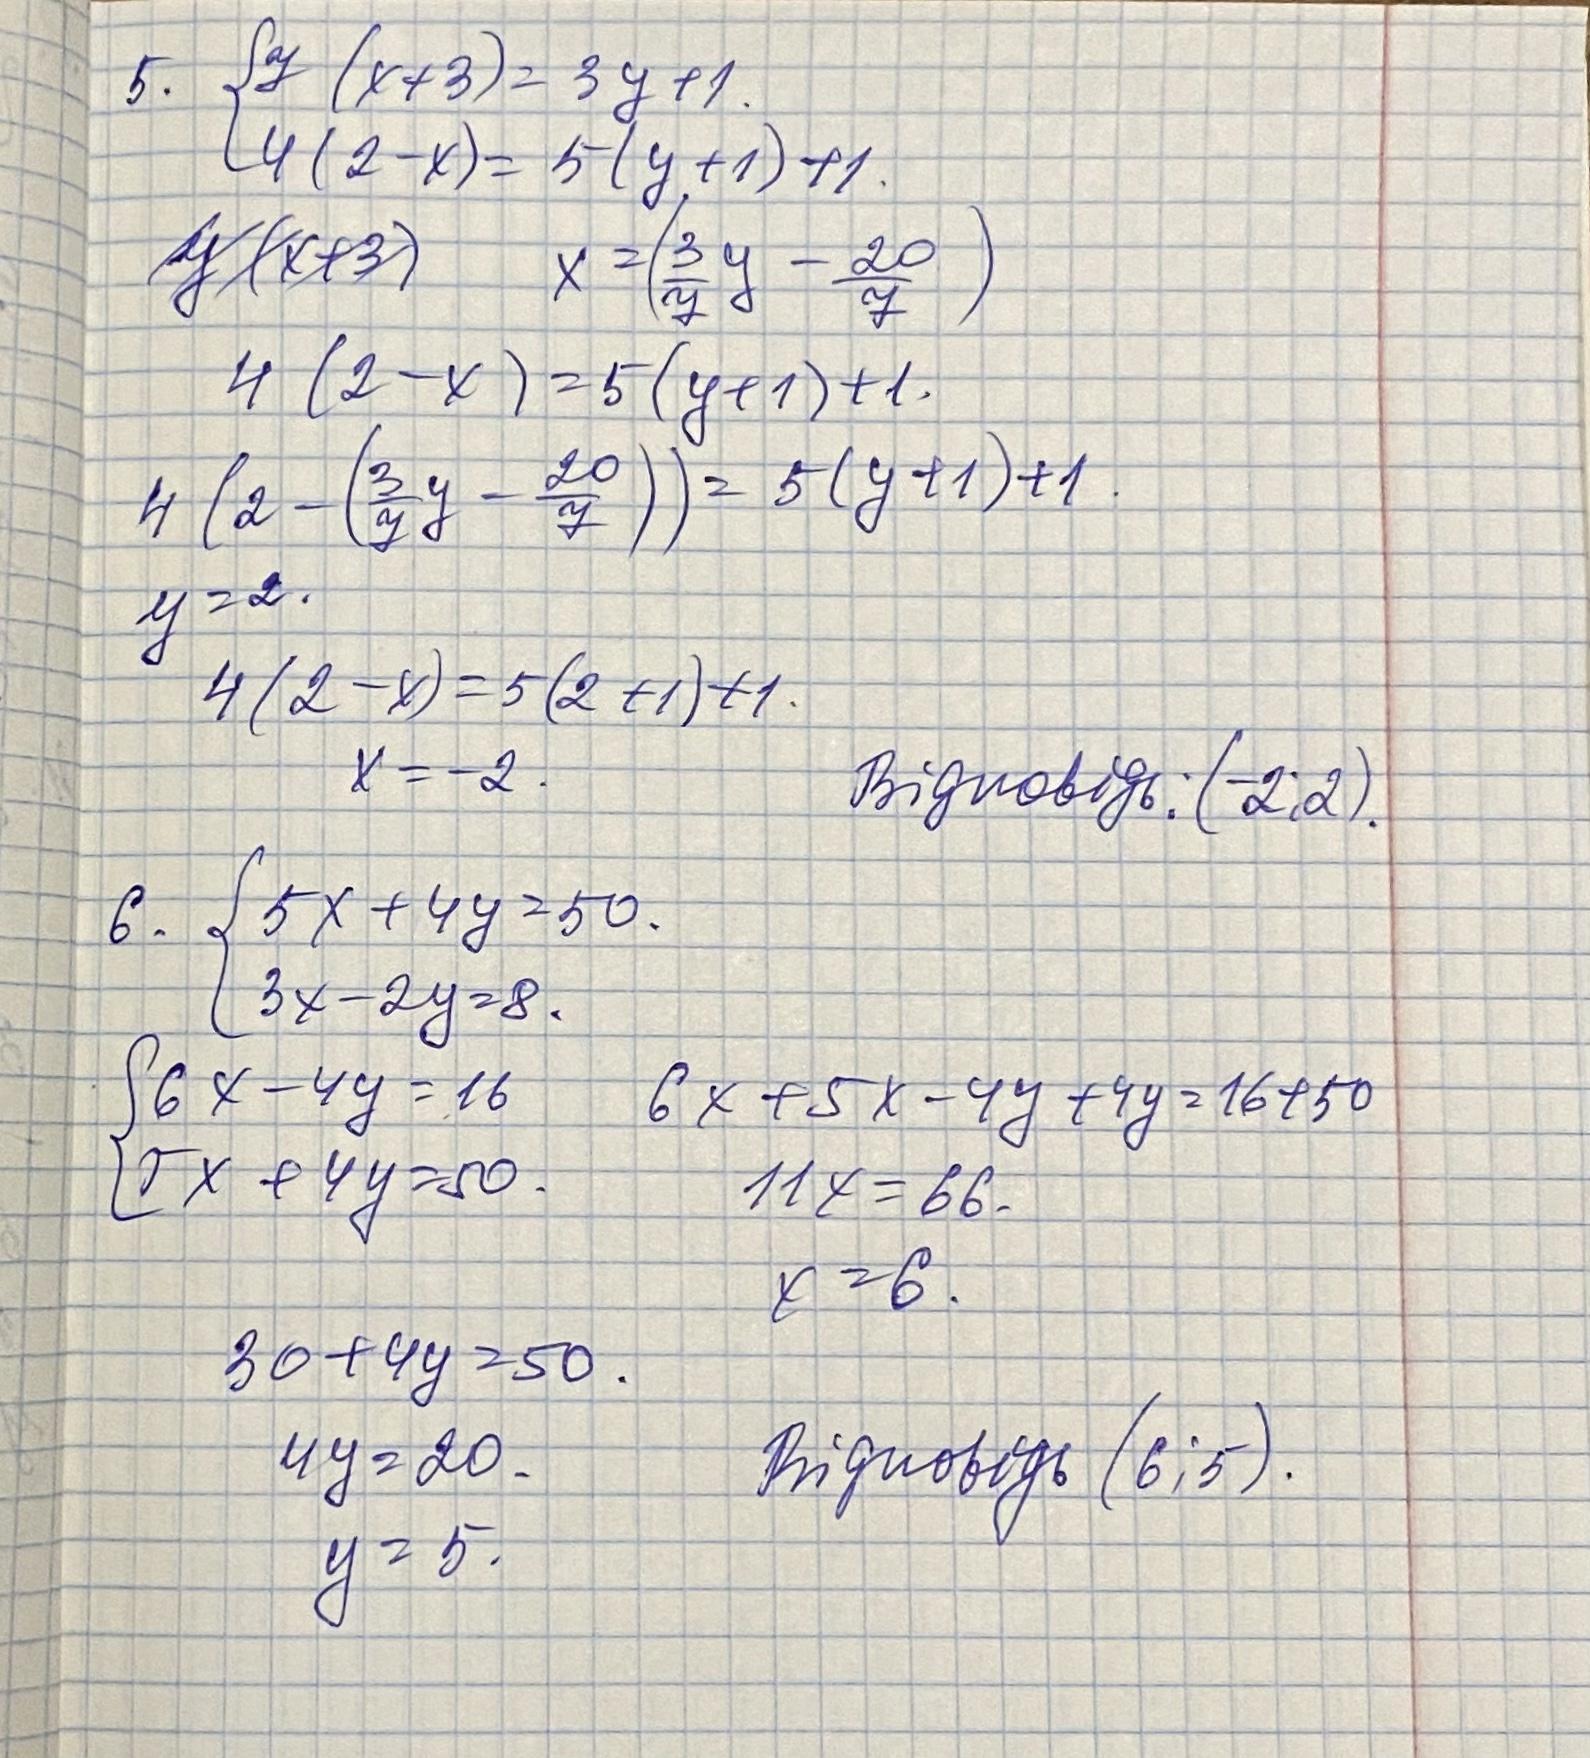 5. { 7 (x+3) = 3y+1.
4 (2-x) = 5(y+1)+1.
7 (x+3) x = (3/7 y - 20/7)
4 (2-x) = 5(y+1)+1.
4 (2-(3/7 y - 20/7)) = 5(y+1)+1.
y=2.
4(2-x)=5(2+1)+1.
x=-2. Відповідь: (-2;2).
6. { 5x+4y=50.
3x-2y=8.
{ 6x-4y=16 6x+5x-4y+4y=16+50
5x+4y=50. 11x=66.
x=6.
30+4y=50.
4y=20. Відповідь (6;5).
y=5.